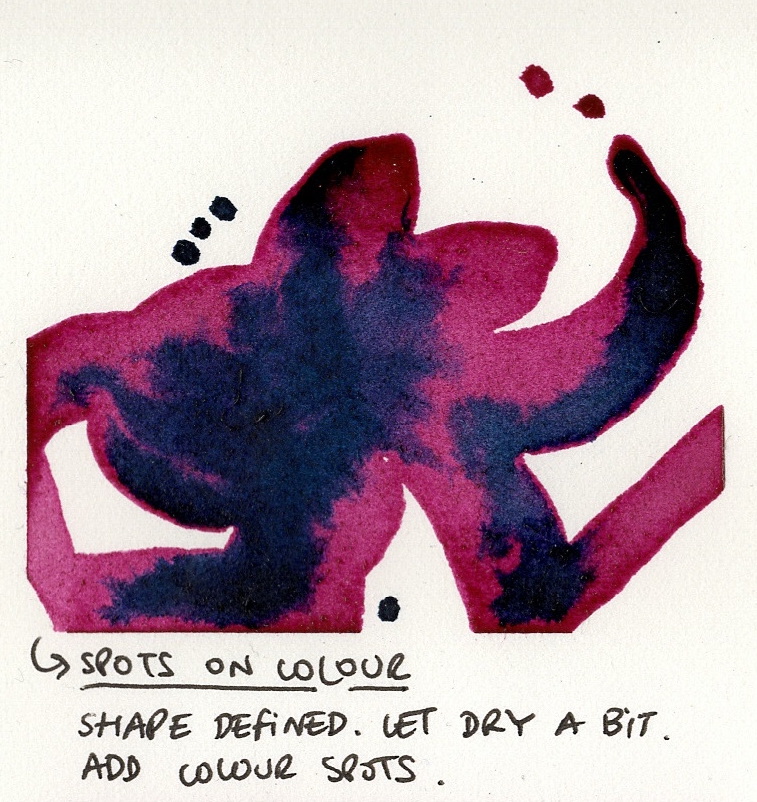 ↳ SPOTS ON COLOUR
SHAPE DEFINED. LET DRY A BIT.
ADD COLOUR SPOTS.